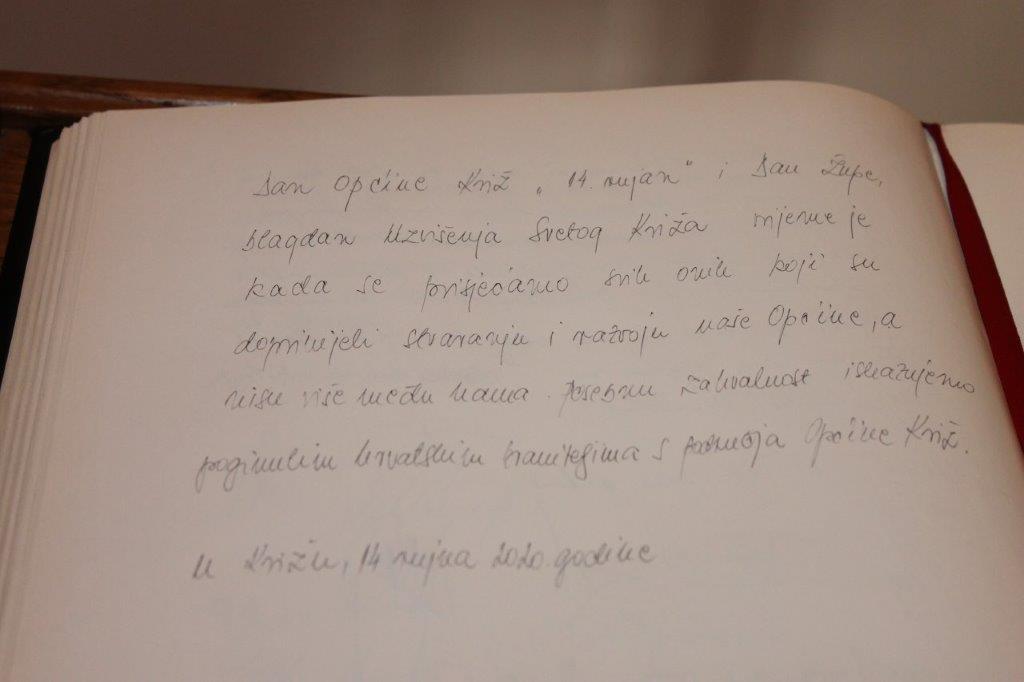 Dan Općine Križ „14. rujan" i Dan Župe,
blagdan Uzvišenja Svetog Križa vrijeme je
kada se prisjećamo svih onih koji su
doprinijeli stvaranju i razvoju naše Općine, a
nisu više među nama. Posebnu zahvalnost iskazujemo
poginulim hrvatskim braniteljima s područja Općine Križ.
U Križu, 14 rujna 2020. godine